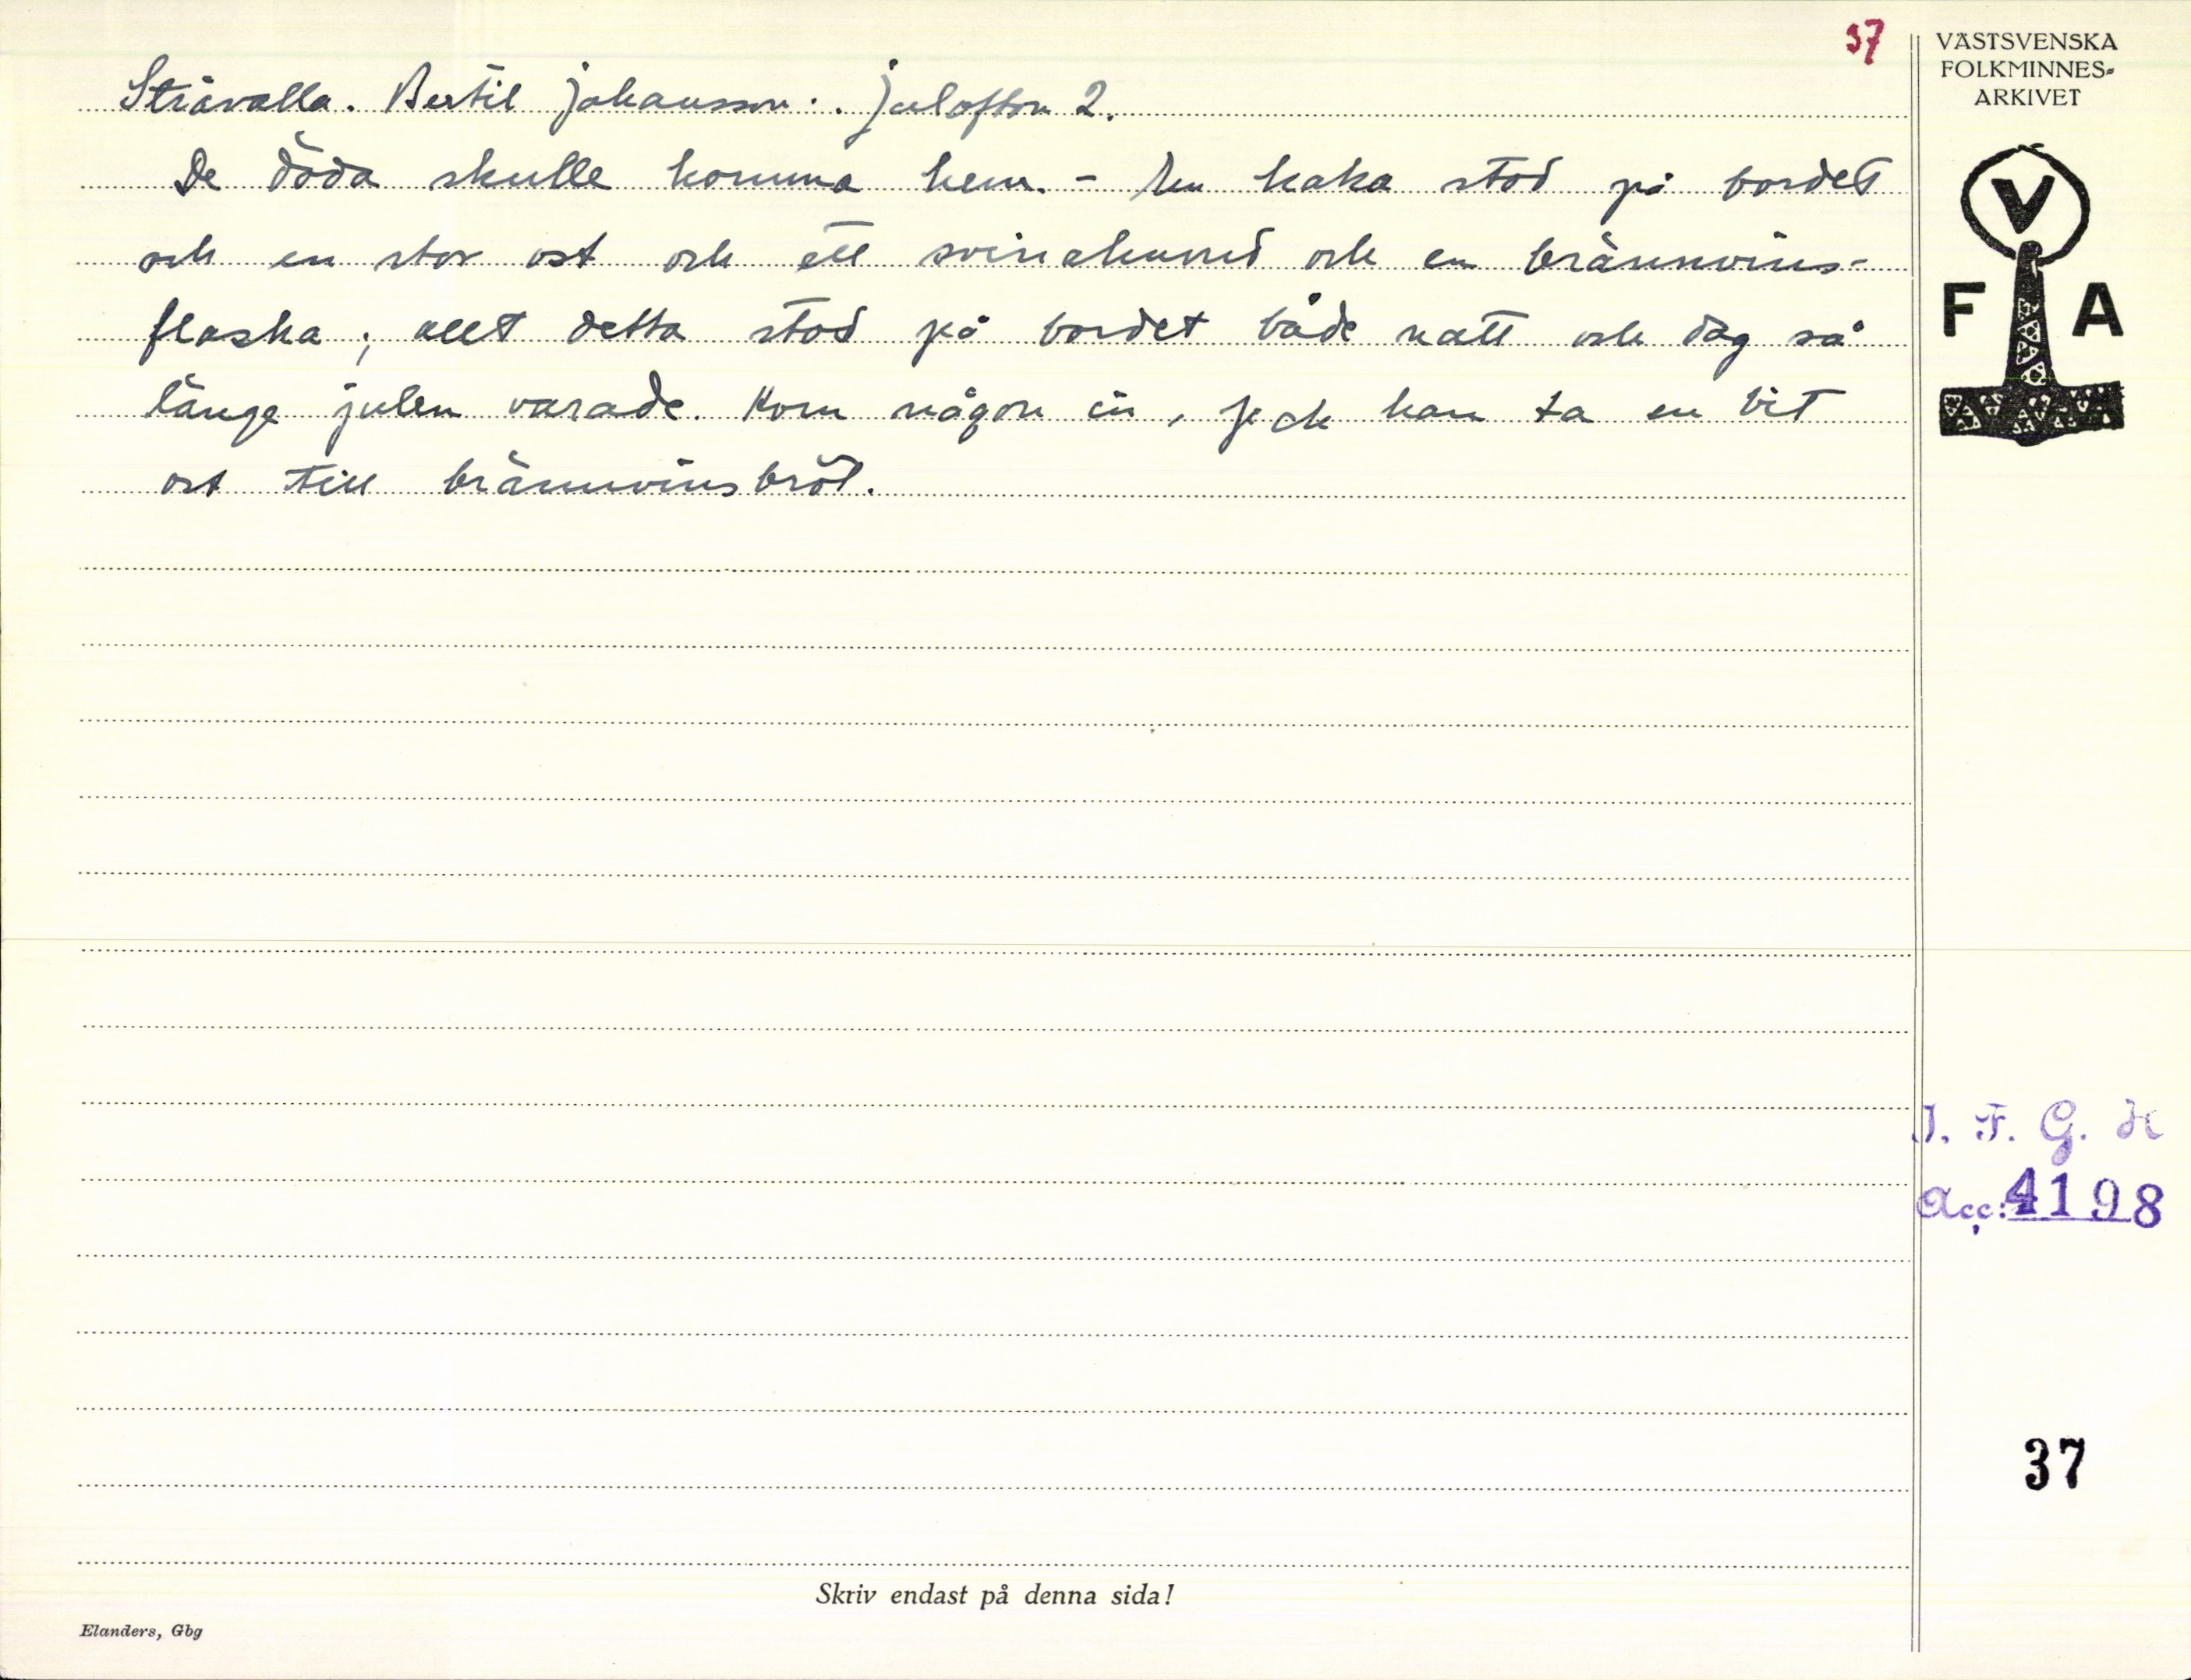 37
Stråvalla. Bertil Johansson. Julafton 2.
De döda skulle komma hem. - En kaka stod på bordet
och en stor ost och ett svinahuvud och en brännvins-
flaska; allt detta stod på bordet både natt och dag så
länge julen varade. Kom någon in, fick han ta en bit
ost till brännvinsbröd.
VÄSTSVENSKA
FOLKMINNES-
ARKIVET
V
F A
I. F. G. H
Acc: 4198
37
Skriv endast på denna sida!
Elanders, Gbg